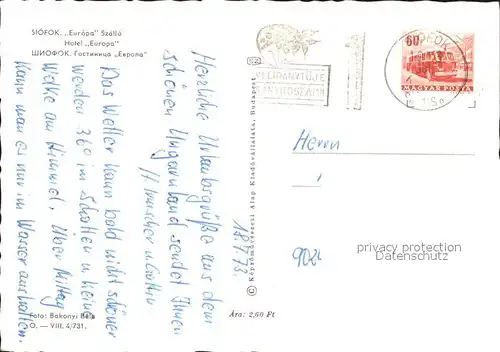 SIÓFOK. „Európa" Szálló
Hotel „Europa"
ШИОФОК. Гостиница „Европа"
Herzliche Urlaubsgrüße aus dem
schönen Ungarnland sendet Ihnen
18.7.73.
Das Wetter kann bald nicht schöner
werden 36° im Schatten u. keine
Wolke am Himmel. Über Mittag
kann man es nur im Wasser aushalten.
Foto: Bakonyi Béla
O. — VIII. 4/731.
Ára: 2,60 Ft
© Képzőművészeti Alap Kiadóvállalata, Budapest
A VILÁG IRÁNYTŰJE
SIÓFOK
60
MAGYAR POSTA
Herrn
protection watermark
Datenschutz